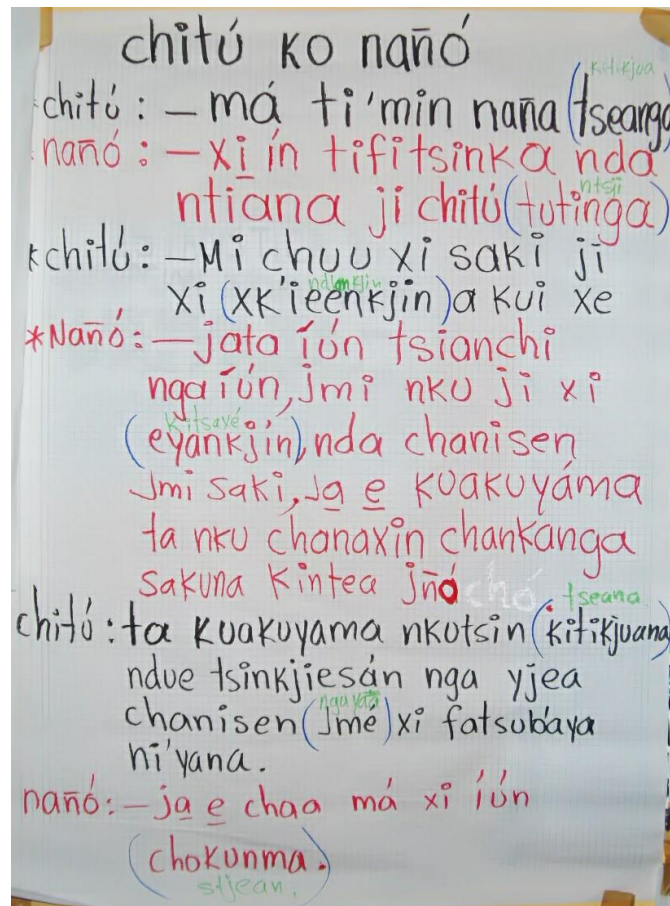 chitú ko nañó
kitikjoa
chitú: – má ti'min naña (tseanga)
nañó: – xi ín tifitsinka nda
ntsji
ntiana ji chitú (tutinga)
* chitú: – Mi chuu xi saki ji
xi (xk'ieenkjin) a kui xe
*Nañó: – jata íún tsianchi
nga íún, jmi nku ji xi
kitsayé
(eyankjín), nda chanisen
jmi saki, ja e kuakuyáma
ta nku chanaxin chankanga
sakuna kintea jñó chó
tseana
chitú: ta kuakuyama nkutsin (kitikjuana)
ndue tsinkjiesán nga yjea
ngayaa
chanisen (jmé) xi fatsubaya
ni'yana.
nañó: – ja e chaa má xi íún
(chokunma.)
stjean.